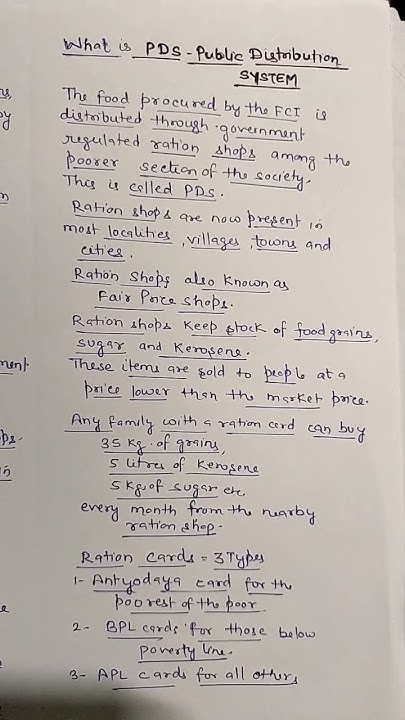 What is PDS - Public Distribution
SYSTEM
The food procured by the FCI is
distributed through government
regulated ration shops among the
poorer section of the society.
This is called PDS.
Ration shops are now present in
most localities, villages, towns and
cities.
Ration Shops also known as
Fair Price shops.
Ration shops keep stock of food grains,
sugar and Kerosene.
These items are sold to people at a
price lower than the market price.
Any family with a ration card can buy
35 kg. of grains,
5 litres of Kerosene
5 kg. of sugar etc
every month from the nearby
ration shop.
Ration cards = 3 Types
1- Antyodaya card for the
poorest of the poor.
2- BPL cards for those below
poverty line.
3- APL cards for all others,